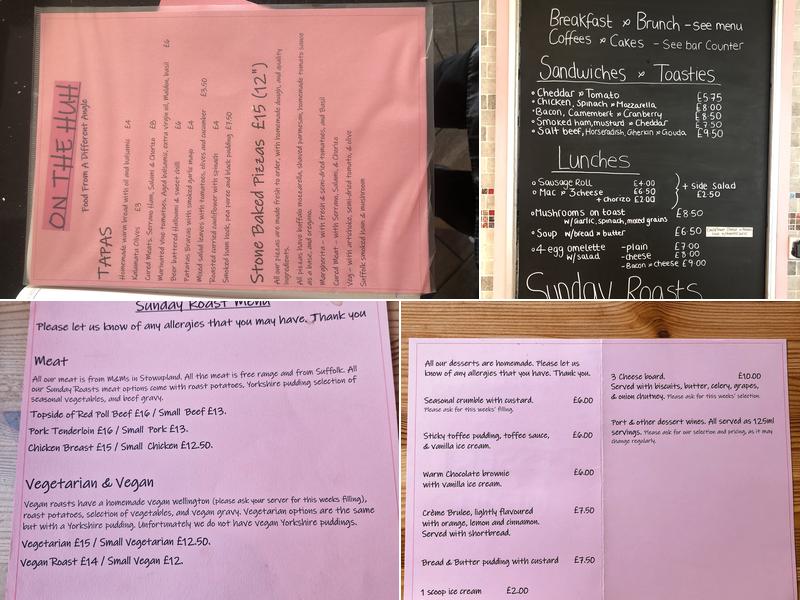 ON THE HUH
Food From A Different Angle
TAPAS
Homemade warm bread with oil and balsamic £4
Kalamata Olives £3
Cured Meats, Serrano Ham, Salami & Chorizo £8
Marinated vine tomatoes, Aged balsamic, extra virgin oil, Maldon, basil £6
Beer battered Halloumi & sweet chilli £6
Patatas Bravas with smoked garlic mayo £4
Mixed salad leaves with tomatoes, olives and cucumber £3.50
Roasted curried cauliflower with spinach £4
Smoked ham hock, pea puree and black pudding £7.50
Stone Baked Pizzas £15 (12")
All our pizzas are made fresh to order, with homemade dough, and quality
ingredients.
All pizzas have buffalo mozzarella, shaved parmesan, homemade tomato sauce
as a base, and oregano.
Margherita - with fresh & semi-dried tomatoes, and Basil
Cured Meat - with Serrano, Salami, & Chorizo
Veg - with artichoke, semi-dried tomato, & olive
Suffolk smoked ham & mushroom
Breakfast & Brunch - see menu
Coffees & Cakes - See bar Counter
Sandwiches & Toasties
Cheddar & Tomato £5.75
Chicken, Spinach & Mozzarella £8.00
Bacon, Camembert & Cranberry £8.50
Smoked ham, mustard & Cheddar £7.50
Salt beef, Horseradish, Gherkin & Gouda £9.50
Lunches
Sausage Roll £4.00
Mac & 3cheese £6.50
+ chorizo £2.00
+ Side Salad
£2.50
Mushrooms on toast £8.50
w/garlic, spinach, mixed grains
Soup w/bread & butter £6.50
4 egg omelette -plain £7.00
w/salad -cheese £8.00
-Bacon & cheese £9.00
Sunday Roasts
Sunday Roast Menu
Please let us know of any allergies that you may have. Thank you
Meat
All our meat is from M&Ms in Stowupland. All the meat is free range and from Suffolk. All
our Sunday Roasts meat options come with roast potatoes, Yorkshire pudding selection of
seasonal vegetables, and beef gravy.
Topside of Red Poll Beef £16 / Small Beef £13.
Pork Tenderloin £16 / Small Pork £13.
Chicken Breast £15 / Small Chicken £12.50.
Vegetarian & Vegan
Vegan roasts have a homemade vegan wellington (please ask your server for this weeks filling),
roast potatoes, selection of vegetables, and vegan gravy. Vegetarian options are the same
but with a Yorkshire pudding. Unfortunately we do not have vegan Yorkshire puddings.
Vegetarian £15 / Small Vegetarian £12.50.
Vegan Roast £14 / Small Vegan £12.
All our desserts are homemade. Please let us
know of any allergies that you have. Thank you.
Seasonal crumble with custard. £6.00
Please ask for this weeks' filling.
Sticky toffee pudding, toffee sauce, £6.00
& vanilla ice cream.
Warm Chocolate brownie £6.00
with vanilla ice cream.
Crème Brulee, lightly flavoured £7.50
with orange, lemon and cinnamon.
Served with shortbread.
Bread & Butter pudding with custard £7.50
1 scoop ice cream £2.00
3 Cheese board. £10.00
Served with biscuits, butter, celery, grapes,
& onion chutney. Please ask for this weeks' selection.
Port & other dessert wines. All served as 125ml
servings. Please ask for our selection and pricing, as it may
change regularly.